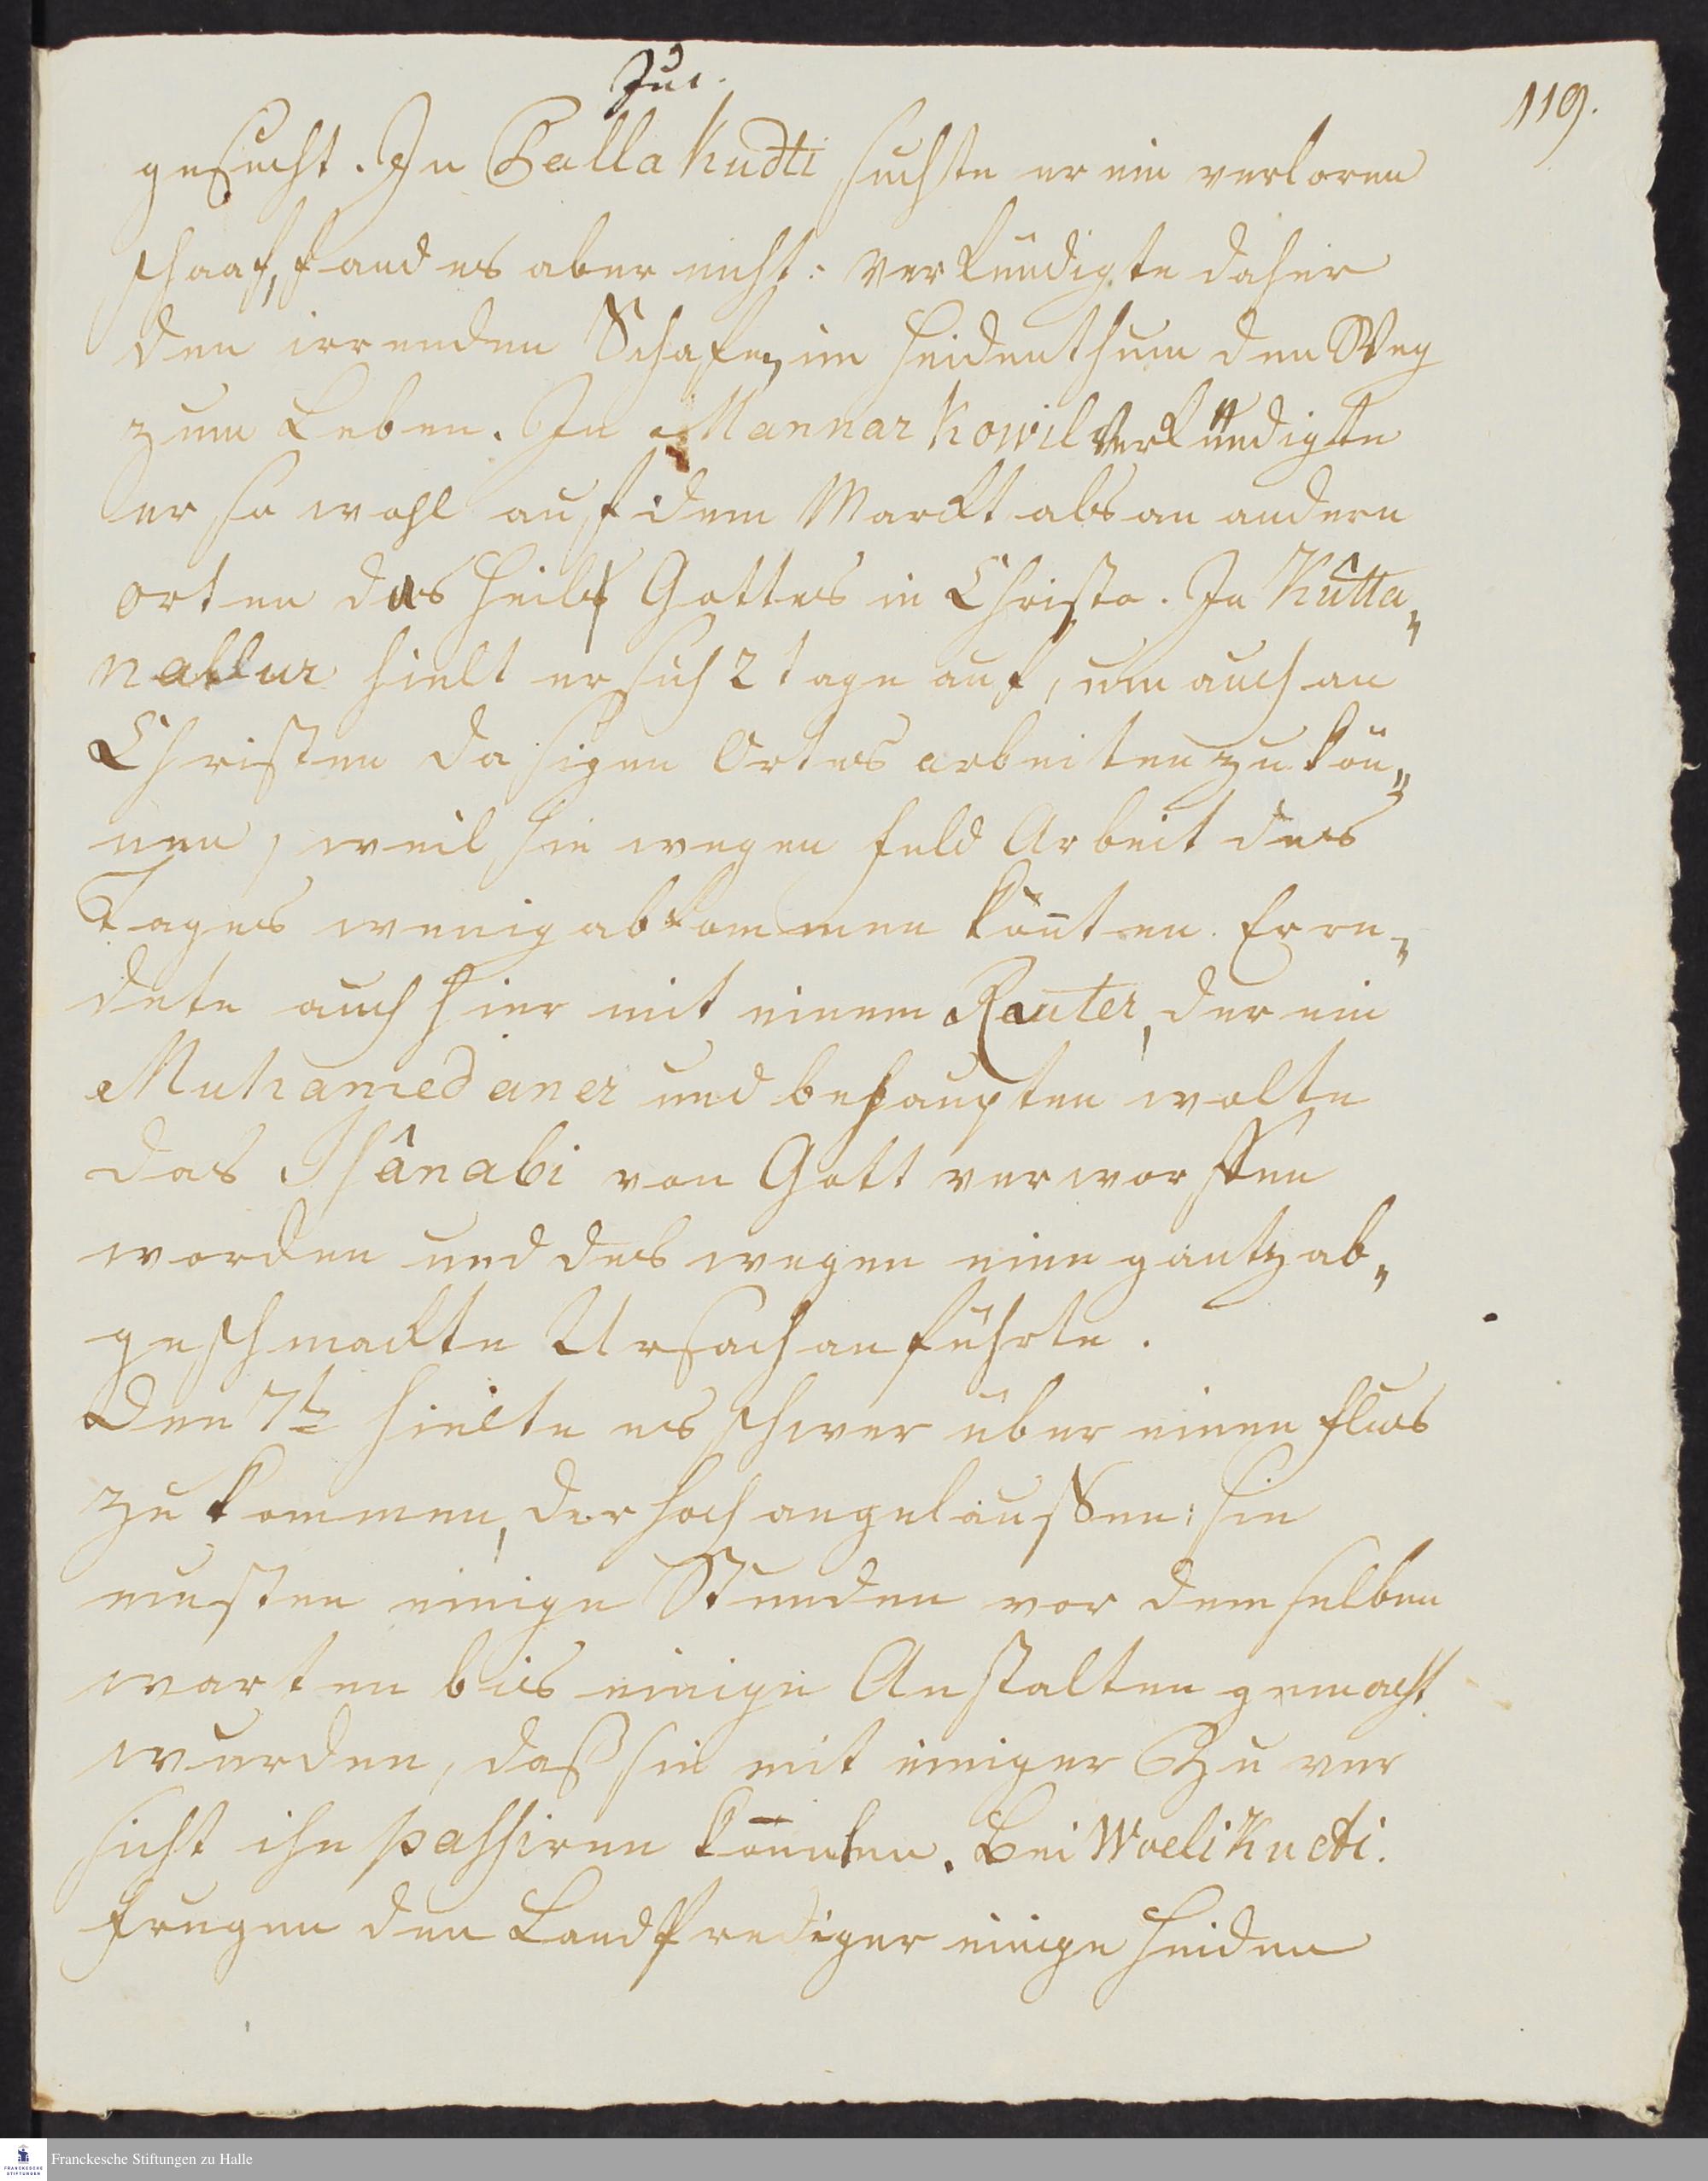 Jul.
119.
gesucht. In Pallakudti suchte er ein verloren
schaaf, fand es aber nicht: verkündigte daher
den irrenden Schafen im Heidenthum den Weg
zum Leben. In Mannarkowil verkündigte
er so wohl auf dem Markt als an andern
orten das Heil Gottes in Christo. In Kûtta„
nallur hielt er sich 2 tage auf, um auch an
Christen dasigen Ortes arbeiten zu kön„
nen, weil sie wegen feld Arbeit des
Tages wenig abkommen könten. Er re„
dete auch hier mit einem Rauter, der ein
Muhamedaner und behaupten wolte
das Isânabi von Gott verworffen
worden und des wegen eine gantz ab„
geschmackte Ursach anführte.
Den 7t hielte es schwer über einen flus
zu kommen, der hoch angelauffen: sie
musten einige Stunden vor demselben
warten bis einige Anstalten gemacht
wurden, daß sie mit einiger Zu ver
sicht ihn passiren konnten. Bei Woelikudti.
frugen den LandPrediger einige Heiden
Franckesche Stiftungen zu Halle
FRANCKESCHE
STIFTUNGEN